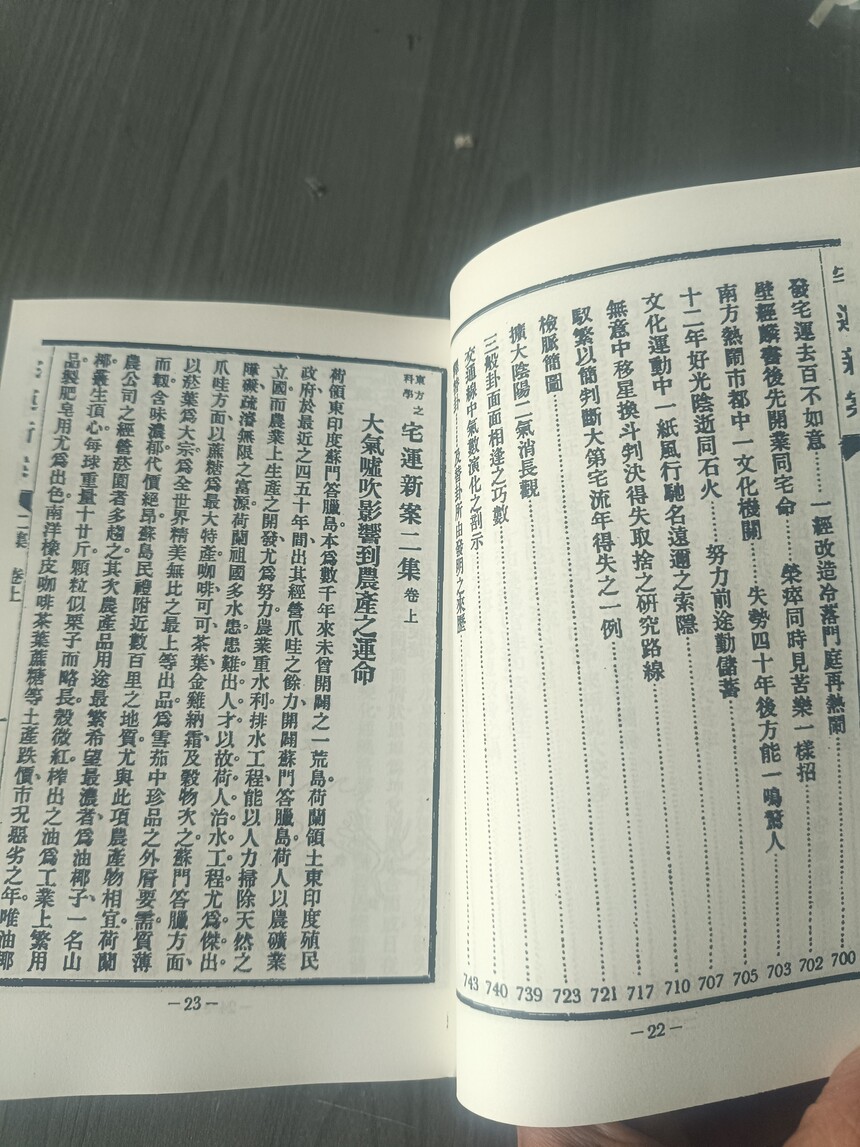 發宅運去百不如意……一經改造冷落門庭再熱鬧……700
壁經麟書後先開業同宅命……榮瘁同時見苦樂一樣招……702
南方熱鬧市都中一文化機關……失勢四十年後方能一鳴驚人……703
十二年好光陰逝同石火……努力前途勤儲蓄……705
文化運動中一紙風行馳名遠邇之索隱……707
無意中移星換斗判決得失取捨之研究路線……710
馭繁以簡判斷大第宅流年得失之一例……717
檢脈簡圖……721
擴大陰陽二氣消長觀……723
三般卦面面相逢之巧數……739
交通線中氣數演化之剖示……740
替卦……及替卦所由發明之來歷……743
—22—
東方之科學 宅運新案二集 卷上
大氣噓吹影響到農產之運命
荷領東印度蘇門答臘島。本為數千年來未曾開闢之一荒島。荷蘭領土東印度殖民
政府、於最近之四五十年、間出其經營爪哇之餘力、開闢蘇門答臘島。荷人以農礦業
立國、而農業上生產之開發、尤為努力。農業重水利、排水工程、能以人力掃除天然之
障礙、疏濬無限之富源。荷蘭祖國多水患、患難出人才、以故荷人治水工程、尤為傑出。
爪哇方面、以蔗糖為最大特產、咖啡、可可、茶、葉、金雞納、霜、及穀物次之。蘇門答臘方面、
以菸葉為大宗、為全世界精美無比之最上等出品。為雪茄中珍品之外層要需。質薄
而靱、含味濃郁、代價絕昂。蘇島民禮附近數百里之地質、尤與此項農產物相宜。荷蘭
農公司之經營菸園者、多趨之。其次農產品用途最繁、希望最濃者、為油椰子、一名山
椰。叢生頂心。每球重量十廿斤。顆粒似栗子而略長。殼微紅。榨出之油、為工業上繁用
品。製肥皂用、尤為出色。南洋橡皮咖啡茶葉蔗糖等土產跌價、市況惡劣之年。唯油椰
二集 卷上
—23—